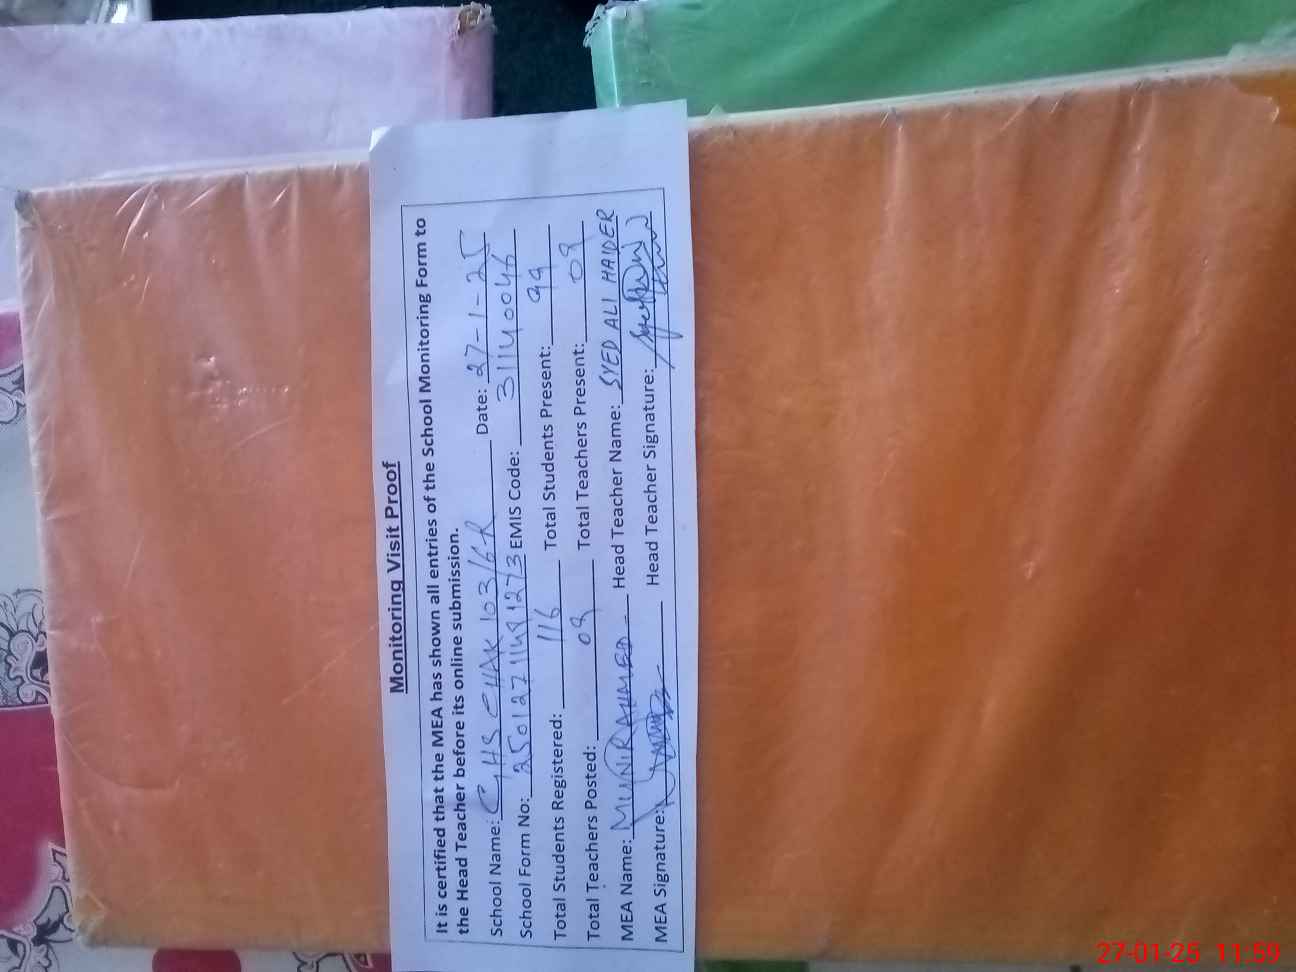 Monitoring Visit Proof
It is certified that the MEA has shown all entries of the School Monitoring Form to
the Head Teacher before its online submission.
School Name: GHS CHAK 103/6R Date: 27-1-25
School Form No: EMIS Code: 31140046
Total Students Registered: 116 Total Students Present: 99
Total Teachers Posted: 09 Total Teachers Present: 09
MEA Name: MUNIR AHMED Head Teacher Name: SYED ALI HAIDER
MEA Signature: Head Teacher Signature:
27-01-25 11:59